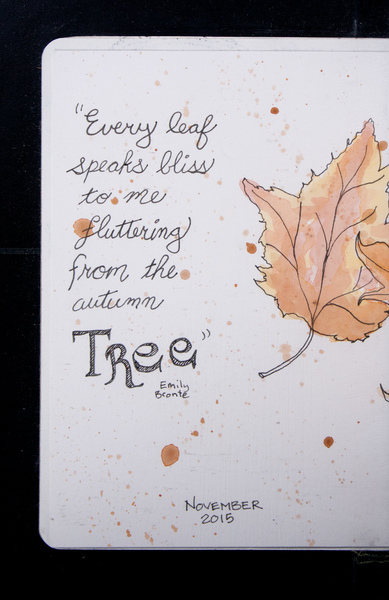 "Every leaf
speaks bliss
to me
fluttering
from the
autumn
TRee"
Emily
Brontë
NOVEMBER
2015